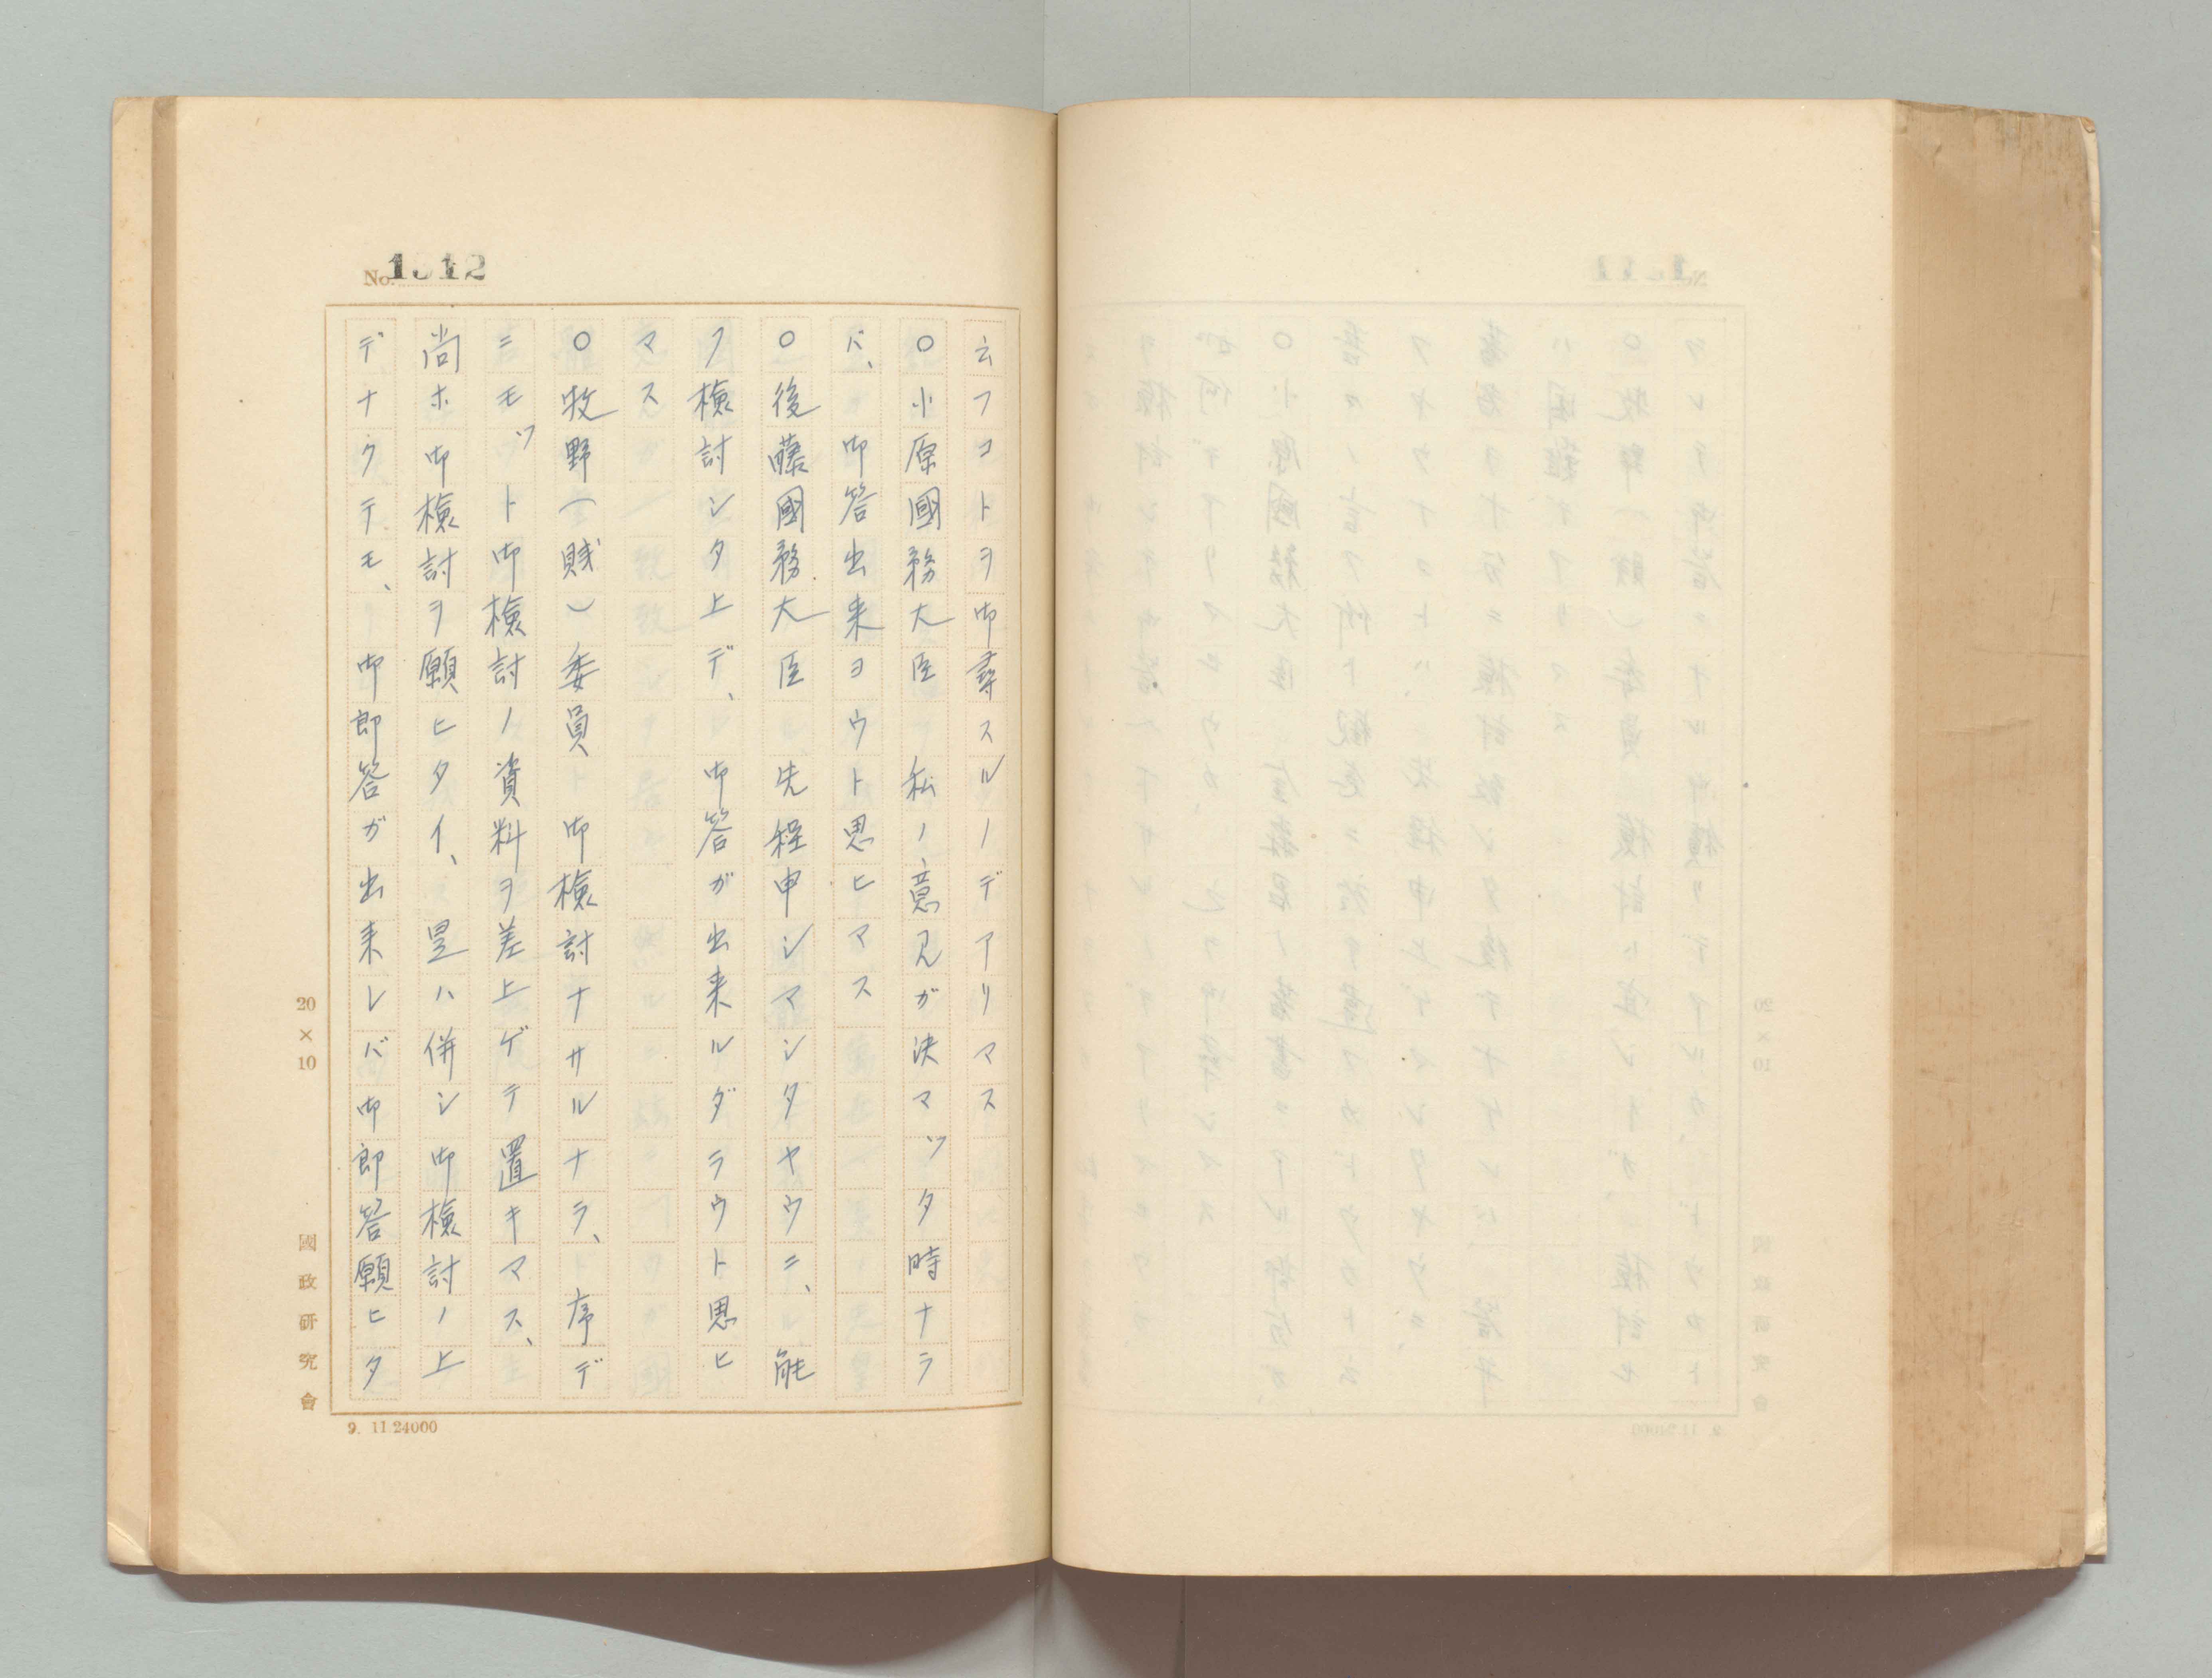 No. 1312
云フコトヲ御尋スルノデアリマス
〇小原國務大臣　私ノ意見ガ決マツタ時ナラ
バ、御答出来ヨウト思ヒマス
〇後藤國務大臣　先程申シマシタヤウニ、能
ク檢討シタ上デ、御答ガ出来ルダラウト思ヒ
マス
〇牧野(賤)委員　御檢討ナサルナラ、序デ
ニモツト御檢討ノ資料ヲ差上ゲテ置キマス、
尚ホ御檢討ヲ願ヒタイ、是ハ併シ御檢討ノ上
デナクテモ、御即答ガ出来レバ御即答願ヒタ
20×10
國政研究會
9. 11 24000